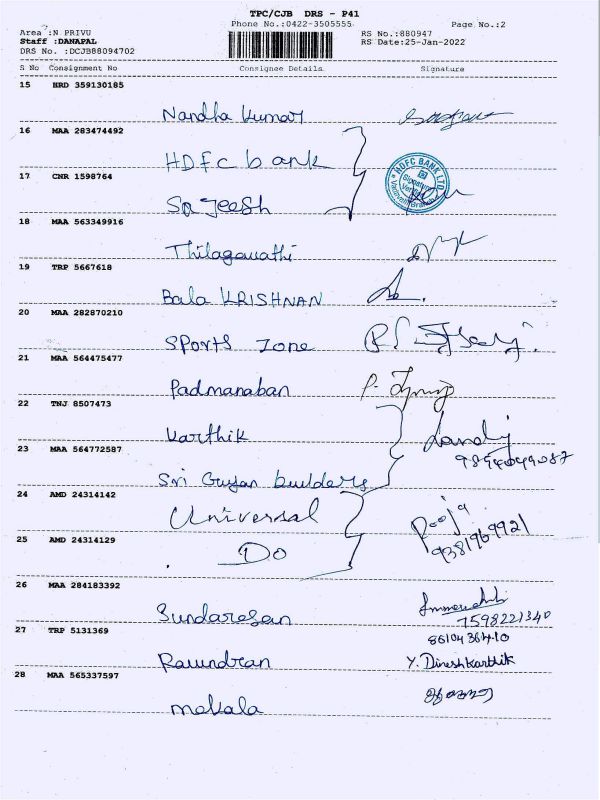 TPC/CJB DRS - P41
Phone No.:0422-3505555
Page No.:2
Area :N PRIVU
RS No.:880947
Staff :DANAPAL
RS Date:25-Jan-2022
DRS No. :DCJB88094702
S No Consignment No Consignee Details Signature
15 HRD 359130185
Nandha Kumar
16 MAA 283474492
HDFC bank
HDFC BANK LTD.
Signature
17 CNR 1598764
Sajeesh
18 MAA 563349916
Thilagavathi
19 TRP 5667618
Bala KRISHNAN
20 MAA 282870210
Sports zone
21 MAA 564475477
Padmanaban P.
22 TNJ 8507473
Karthik
23 MAA 564772587
Sri Gujan builders
24 AMD 24314142
Universal
Pooja
25 AMD 24314129
Do 9381969921
26 MAA 284183392
Sundaresan
7598221340
27 TRP 5131369
Ravindran Y. Dineshkarthik
28 MAA 565337597
mekala